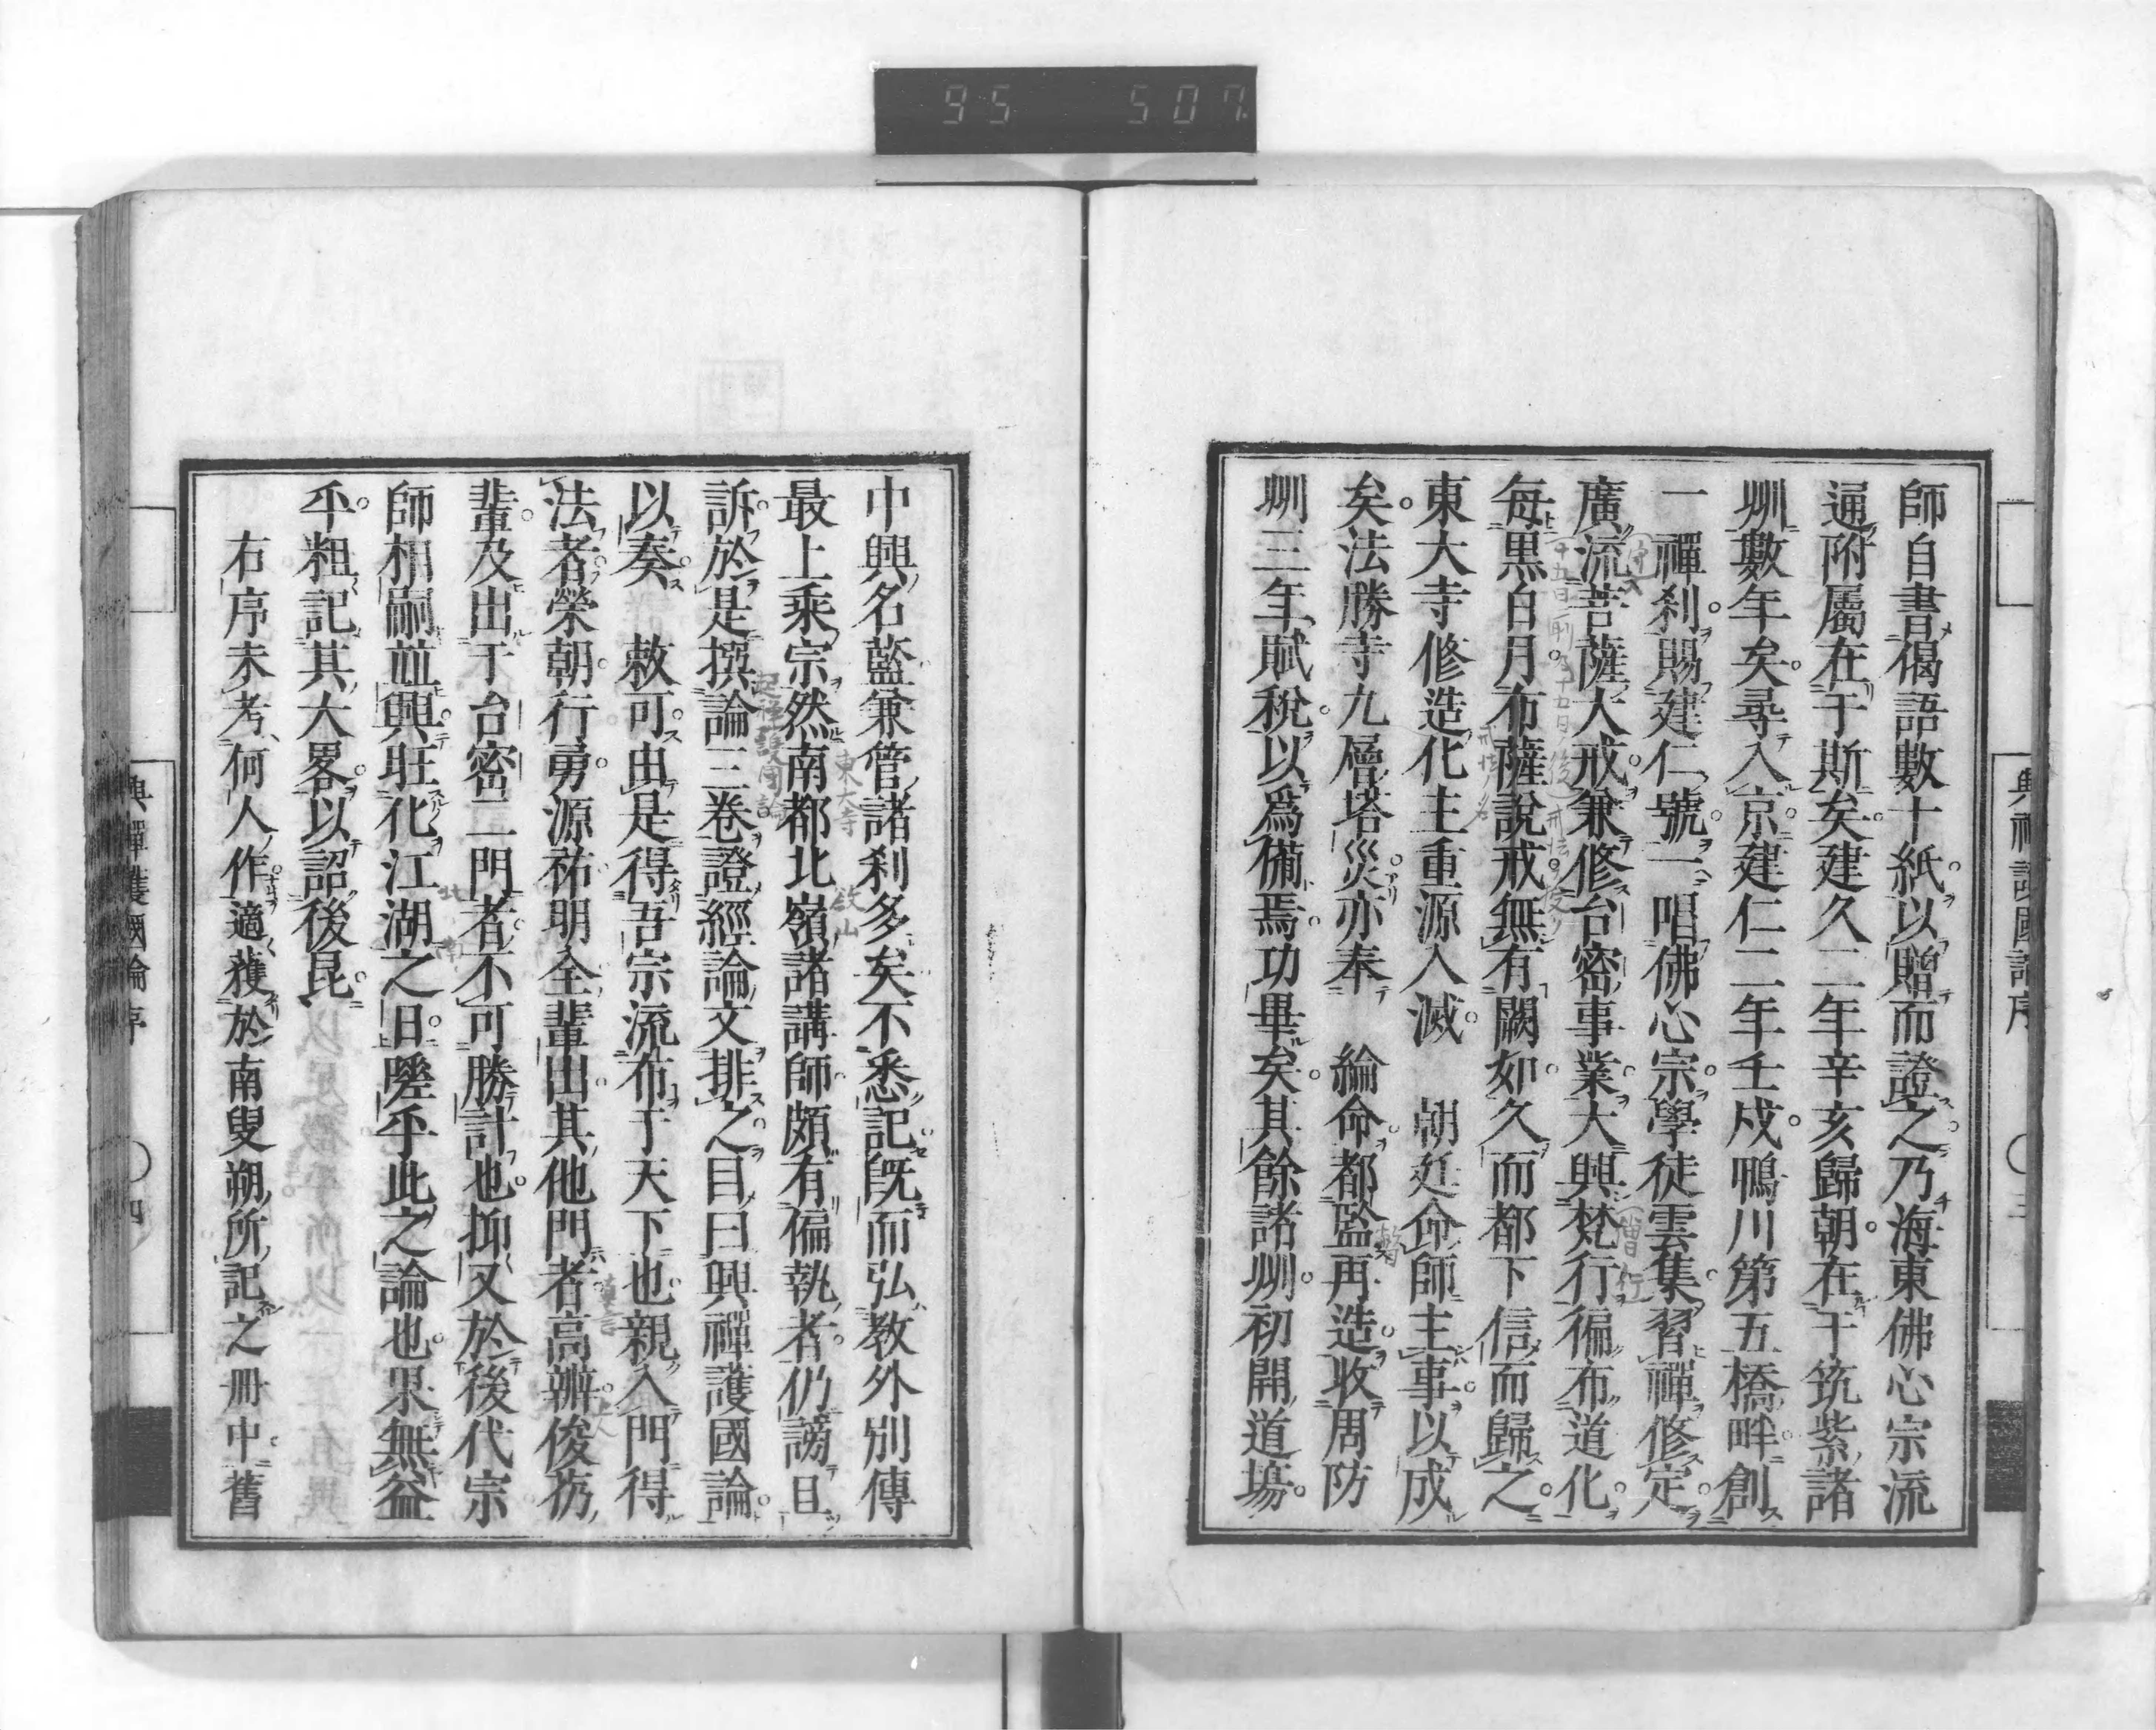 95 507
師自書偈語數十紙以贈而證之乃海東佛心宗流
通附屬在于斯矣建久二年辛亥歸朝在于筑紫諸
州數年矣尋入京建仁二年壬戌鴨川第五橋畔創
一禪刹賜建仁號一唱佛心宗學徒雲集習禪修定
廣流菩薩大戒兼修台密事業大興梵行徧布道化
每黒白月布薩說戒無有闕如久而都下信而歸之
東大寺修造化主重源入滅 朝廷命師主事以成
矣法勝寺九層塔災亦奉 綸命都監再造收周防
州三年賦稅以爲備焉功畢矣其餘諸州初開道場
中興名藍兼管諸刹多矣不悉記既而弘教外別傳
最上乘宗然南都北嶺諸講師頗有偏執者仍謗且
訴於是撰論三卷證經論文排之目曰興禪護國論
以奏 敕可由是得吾宗流布于天下也親入門得
法者榮朝行勇源祐明全輩出其他門者高辨俊芿
輩及出于台密二門者不可勝計也抑又於後代宗
師相嗣並興旺化江湖之日嗟乎此之論也果無益
乎粗記其大畧以詔後昆
右序未考何人作適獲於南叟朔所記之冊中舊
興禪護國論序
四
東大寺
叡山